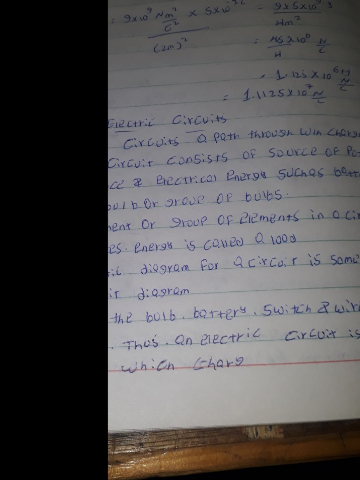 = 9x10⁹ Nm²/C² x 5x10 = 9x5x10
(2m)² 4m²
= 45x10⁶ N/C
4
= 1.125x10⁶⁺¹ N/C
= 1.1125x10⁷ N/C
Electric Circuits
Circuits a path through wich charge
Circuit consists of source of Po
ce & electrical energy suchas batt
bulb or group of bulbs.
ment or group of elements in a cir
es energy is called a load
ic diagram for a circuit is some
it diagram
the bulb. battery. switch & wir
. Thus. an electric circuit is
which charg